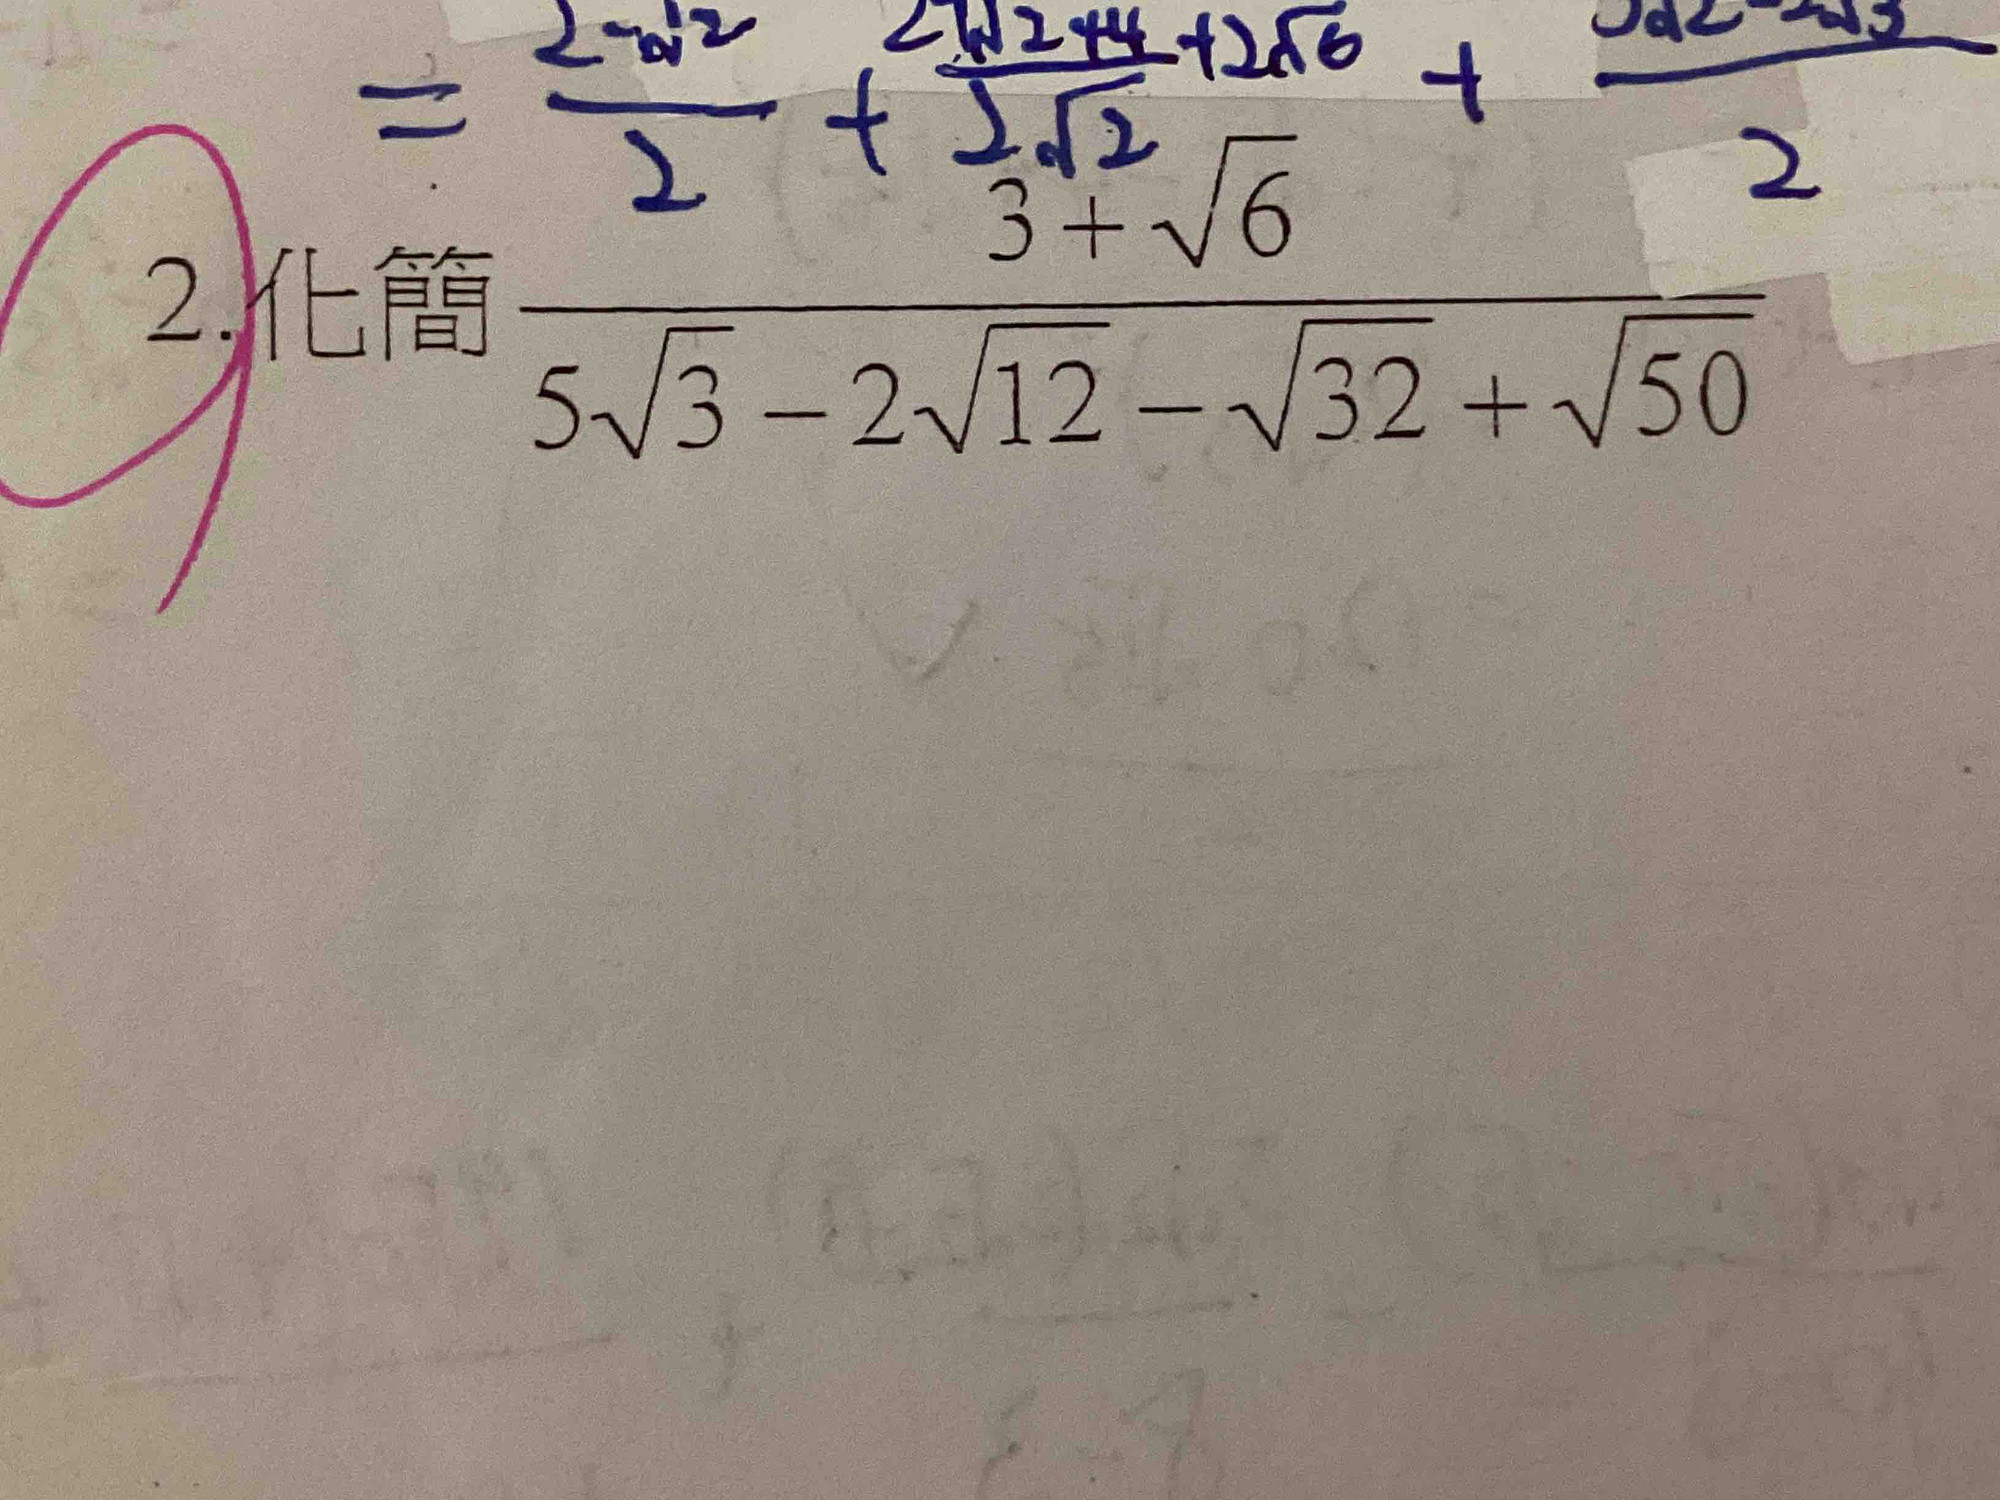 = 2-√2/2 + 2√2+4+2√6/2√2 + /2
2.化簡 3+√6/5√3-2√12-√32+√50